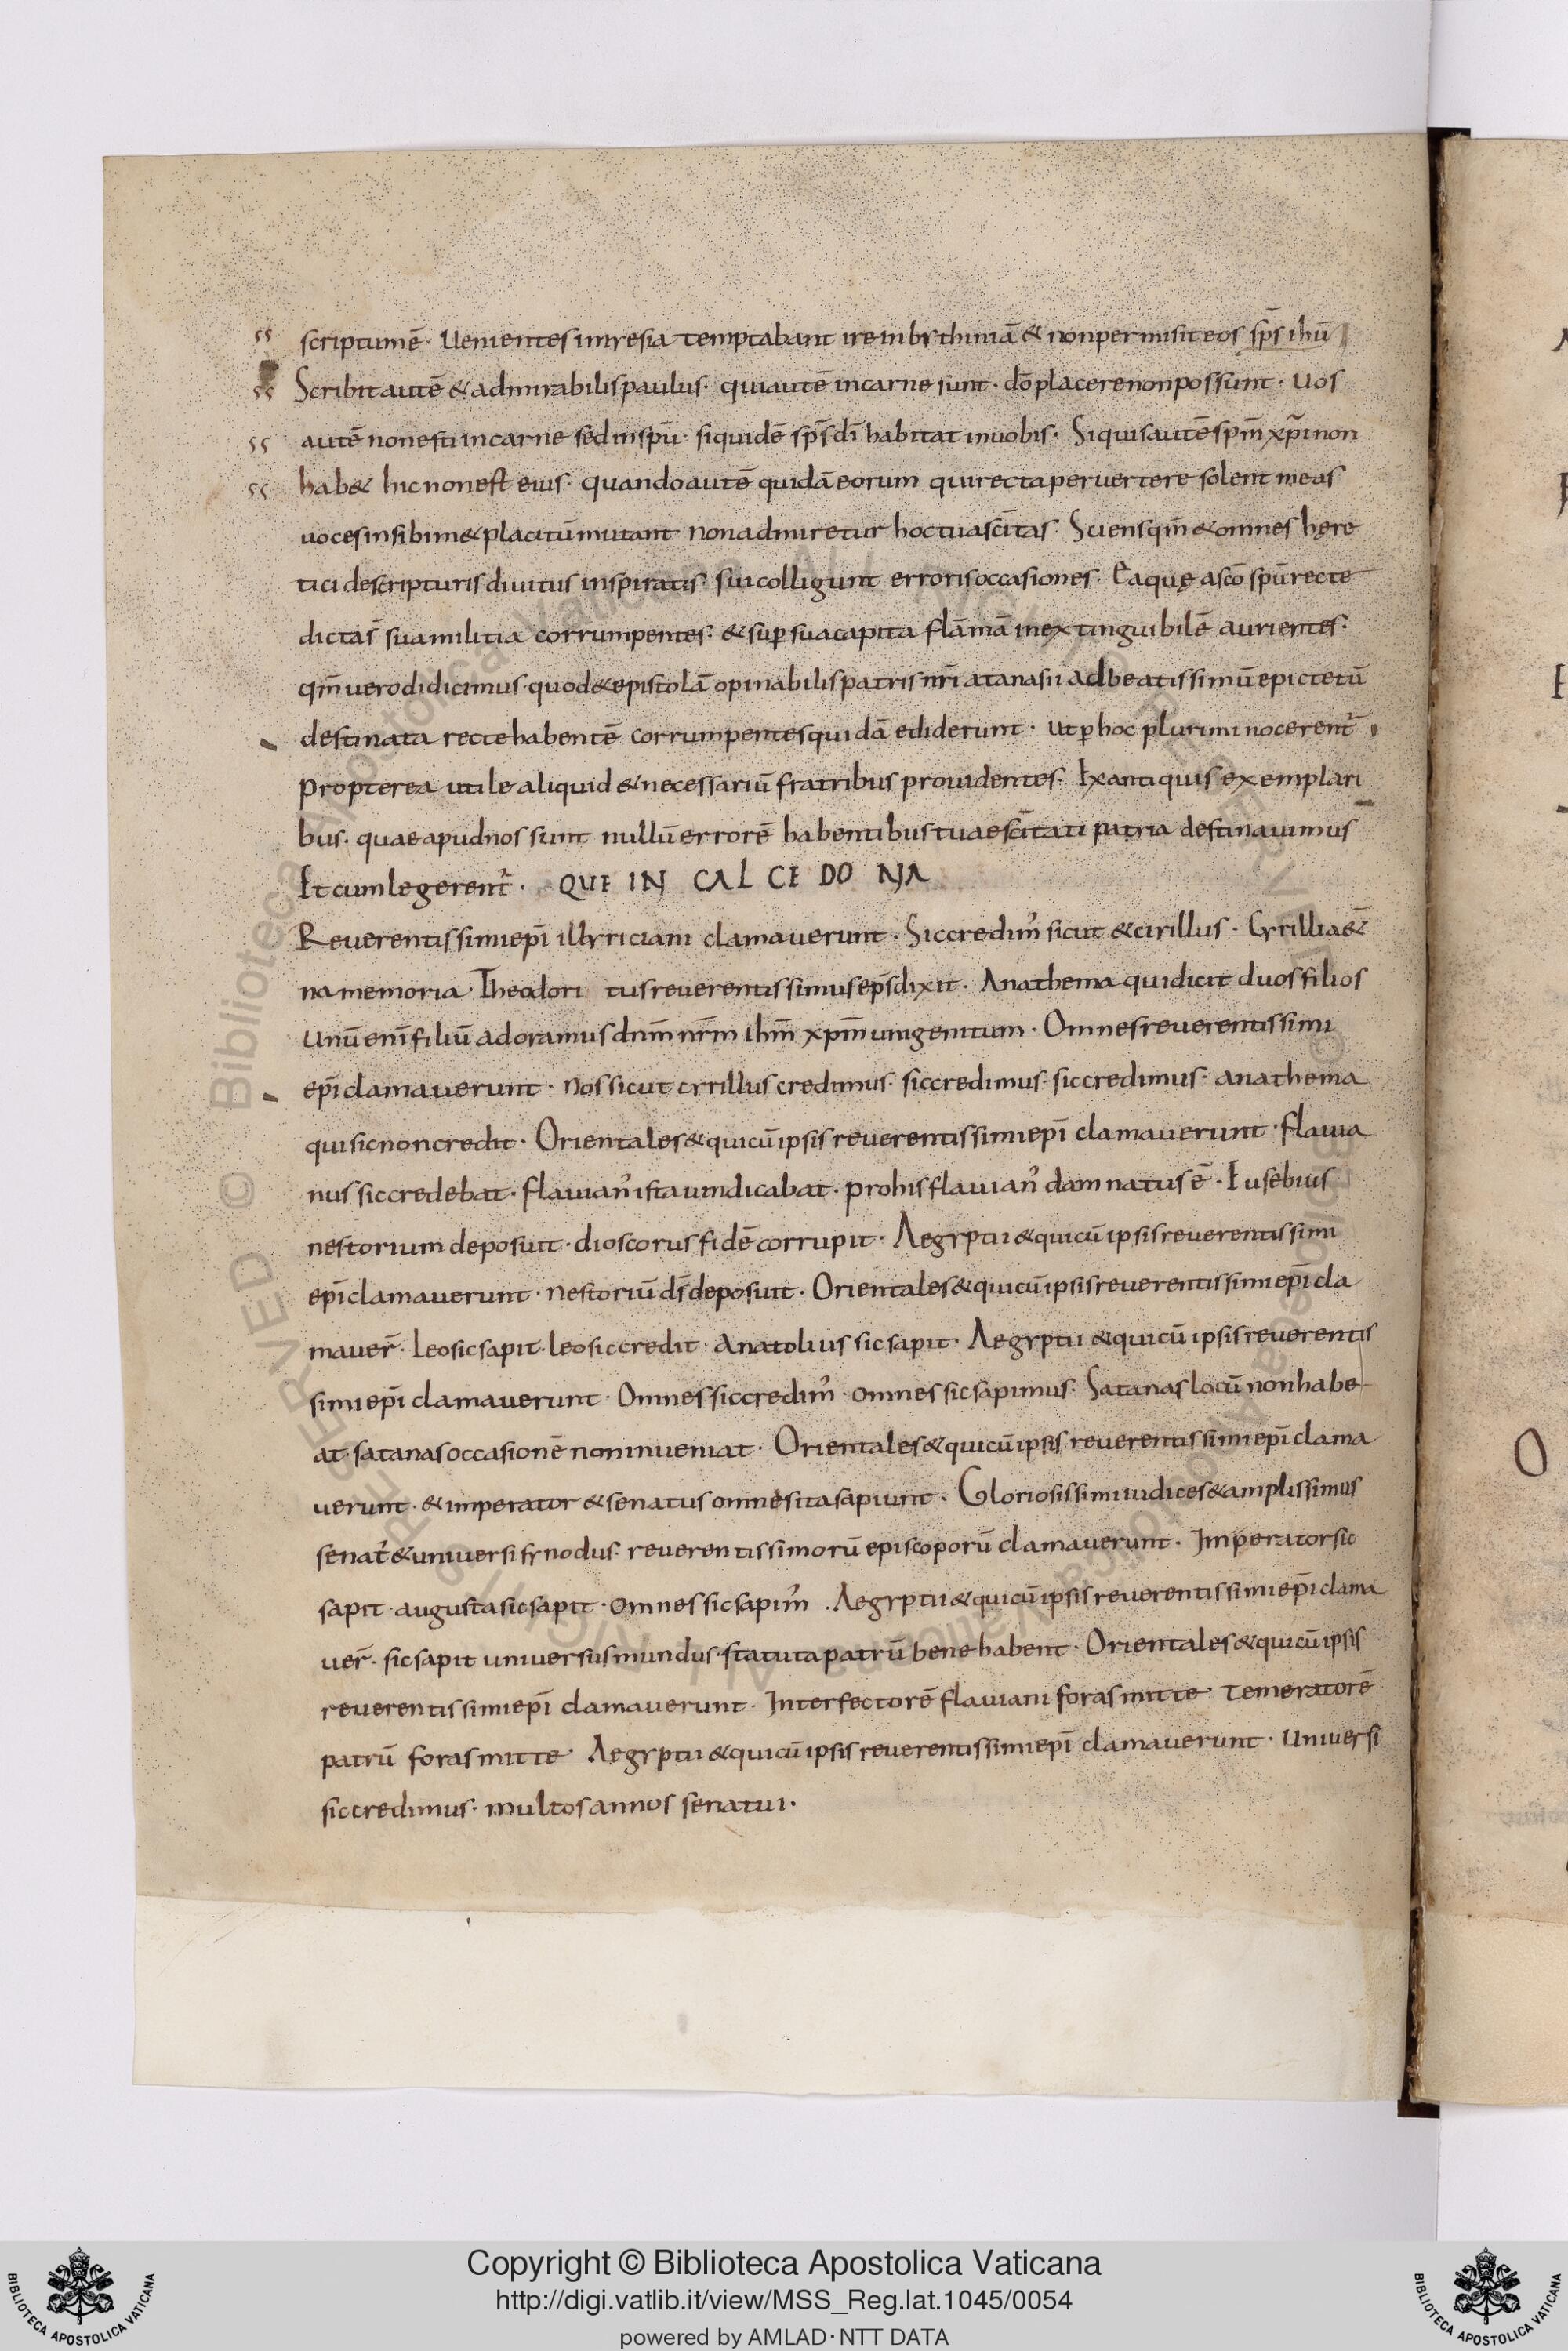 scriptumē · Uenientes inresia temptabant ire in bythiniā & non permisit eos sp̄s ihū
Scribit autē & admirabilis paulus · qui autē in carne sunt · dō placere non possunt · Uos
autē non estis in carne sed in sp̄u · siquidē sp̄s dī habitat in uobis · Siquis autē sp̄m xp̄i non
hab& hic non est eius · quando autē quidā eorum qui recta peruertere solent meas
uoces in sibim& placitū mutant non admiretur hoc tua sc̄itas · Sciens qm̄ & omnes hęre
tici de scripturis diuitus inspiratis · sui colligunt erroris occasiones · Eaquę a scō sp̄u recte
dictas̄ sua militia corrumpentes · & sup sua capita flāmā inextinguibilē aurientes ·
qm̄ uero didicimus · quod & epistolā opinabilis patris nr̄i atanasii ad beatissimū epictetū
destinata recte habentē corrumpentes quidā ediderunt · ut p hoc plurimi nocerent̄
propterea utile aliquid & necessariū fratribus prouidentes · Ex antiquis exemplari
bus · quae apud nos sunt nullū errorē habentibus tuae sc̄itati patria destinauimus
Et cum legerent̄ · QUE IN CAL CE DO NIA
Reuerentissimi ep̄i illyriciani clamauerunt · Sic credim᾽ sicut & cirillus · Cyrilli a&̄
na memoria · Theodori tus reuerentissimus ep̄s dixit · Anathema qui dicit duos filios
unū enī filiū adoramus dn̄m nr̄m ihm̄ xpm̄ unigenitum · Omnes reuerentissimi
ep̄i clamauerunt · nos sicut cyrillus credimus · sic credimus · sic credimus · anathema
qui sic non credit · Orientales & qui cū ipsis reuerentissimi ep̄i clamauerunt · flauia
nus sic credebat · flauian᾽ ista uindicabat · pro his flauian᾽ damnatus ē · Eusebius
nestorium deposuit · dioscorus fidē corrupit · Aegyptii & qui cū ipsis reuerentissimi
ep̄i clamauerunt · nestoriū ds̄ deposuit · Orientales & qui cū ipsis reuerentissimi ep̄i cla
mauer̄ · Leo sic sapit · leo sic credit · Anatolius sic sapit · Aegyptii & qui cū ipsis reuerentis
simi ep̄i clamauerunt · Omnes sic credim᾽ · omnes sic sapimus · Satanas locū non habe
at · satanas occasionē non inueniat · Orientales & qui cū ipsis reuerentissimi ep̄i clama
uerunt · & imperator & senatus omnes ita sapiunt · Gloriosissimi iudices & amplissimus
senat᾽ & uniuersi synodus · reuerentissimorū episcoporū clamauerunt · Imperator sic
sapit · augusta sic sapit · omnes sic sapim᾽ . Aegyptii & qui cū ipsis reuerentissimi ep̄i clama
uer̄ · sic sapit uniuersus mundus · statuta patrū bene habent · Orientales & qui cū ipsis
reuerentissimi ep̄i clamauerunt · Interfectorē flauiani foras mitte · Temeratorē
patrū foras mitte · Aegyptii & qui cū ipsis reuerentissimi ep̄i clamauerunt · Uniuersi
sic credimus · multos annos senatui ·
Copyright © Biblioteca Apostolica Vaticana
http://digi.vatlib.it/view/MSS_Reg.lat.1045/0054
powered by AMLAD · NTT DATA
BIBLIOTECA APOSTOLICA VATICANA
BIBLIOTECA APOSTOLICA VATICANA